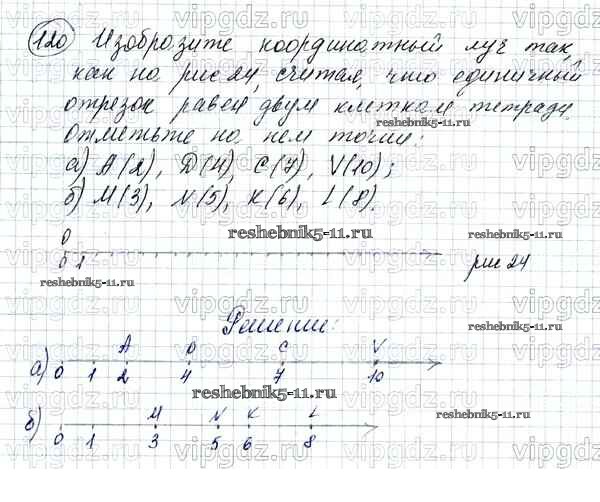 120 Изобразите координатный луч так,
как на рис 24, считая, что единичный
отрезок равен двум клеткам тетради.
Отметьте на нем точки:
а) A(2), D(4), C(7), V(10);
б) M(3), N(5), K(6), L(8).
O
0 1
рис 24
Решение:
A D C V
а) 0 1 2 4 7 10
M N K L
б) 0 1 3 5 6 8
reshebnik5-11.ru
reshebnik5-11.ru
reshebnik5-11.ru
reshebnik5-11.ru
reshebnik5-11.ru
reshebnik5-11.ru
vipgdz.ru